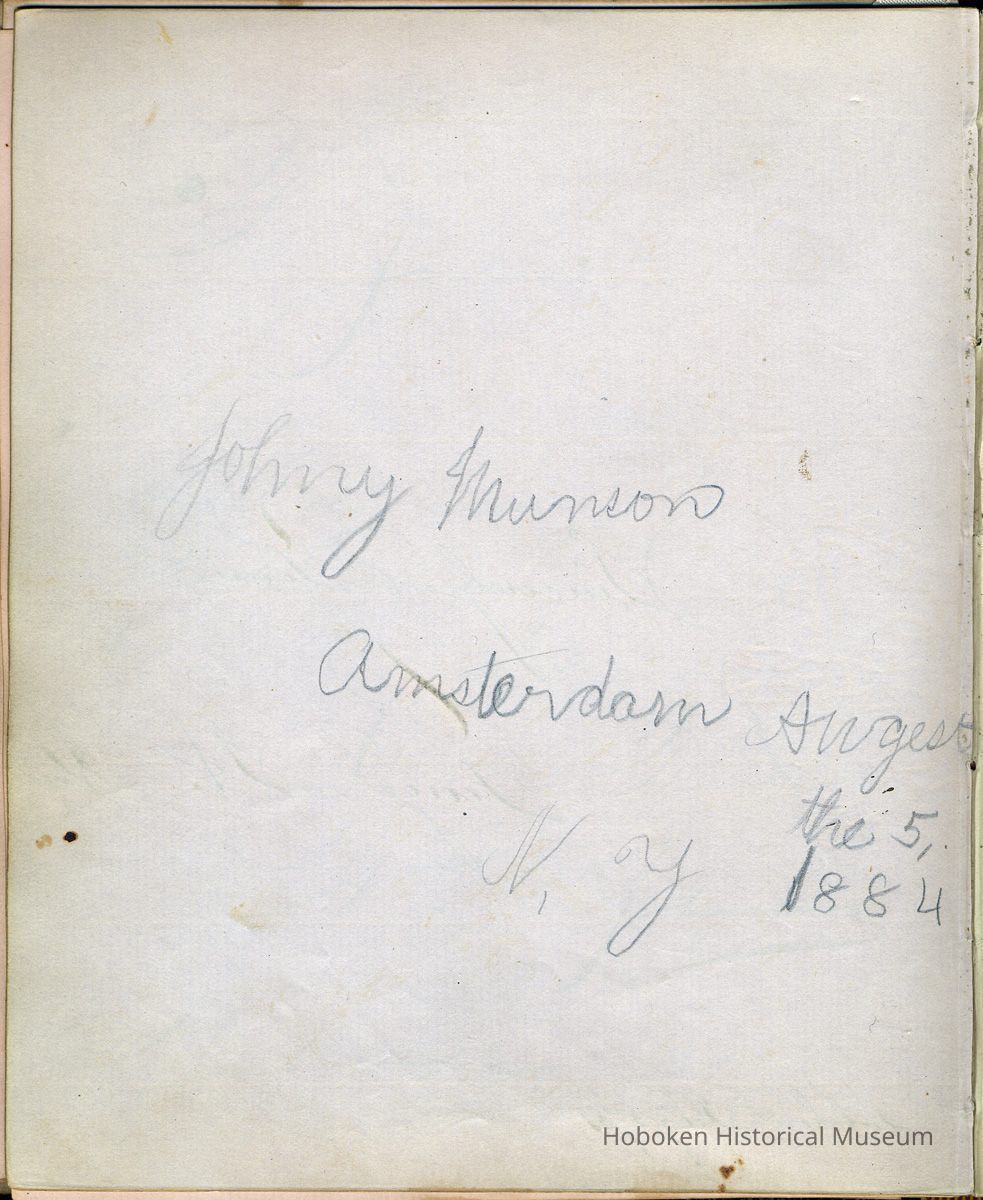 Johny Munson
Amsterdam Augest
N, Y
the 5,
1884
Hoboken Historical Museum